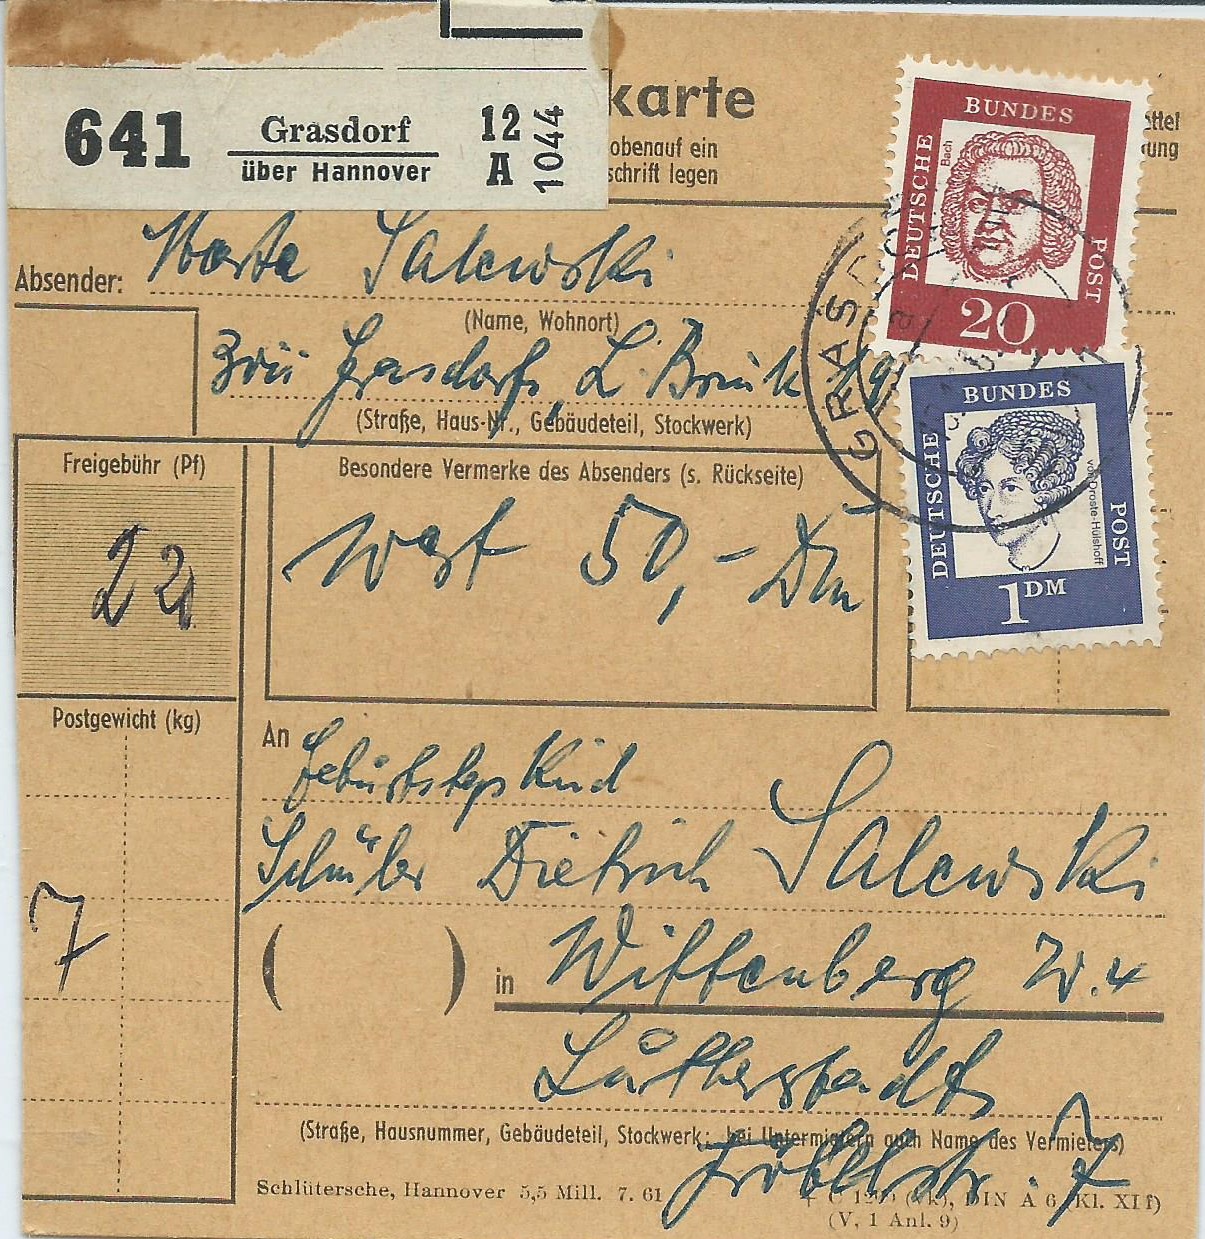 641 Grasdorf 12
über Hannover A 1044
karte
obenauf ein
schrift legen
ttel
ung
BUNDES
DEUTSCHE
POST
Bach
20
GRASDORF
Absender: Marta Salewski
(Name, Wohnort)
Grasdorf, L. Brink 19
(Straße, Haus-Nr., Gebäudeteil, Stockwerk)
BUNDES
DEUTSCHE
POST
v. Droste-Hülshoff
1 DM
Freigebühr (Pf)
22
Besondere Vermerke des Absenders (s. Rückseite)
Wert 50,- DM
Postgewicht (kg)
7
An Geburtstagskind
Schüler Dietrich Salewski
( ) in Wittenberg
Lutherstadt
(Straße, Hausnummer, Gebäudeteil, Stockwerk; bei Untermietern auch Name des Vermieters)
Fröbelstr. 7
Schlütersche, Hannover 5,5 Mill. 7. 61
DIN A 6 (Kl. XI f)
(V, 1 Anl. 9)